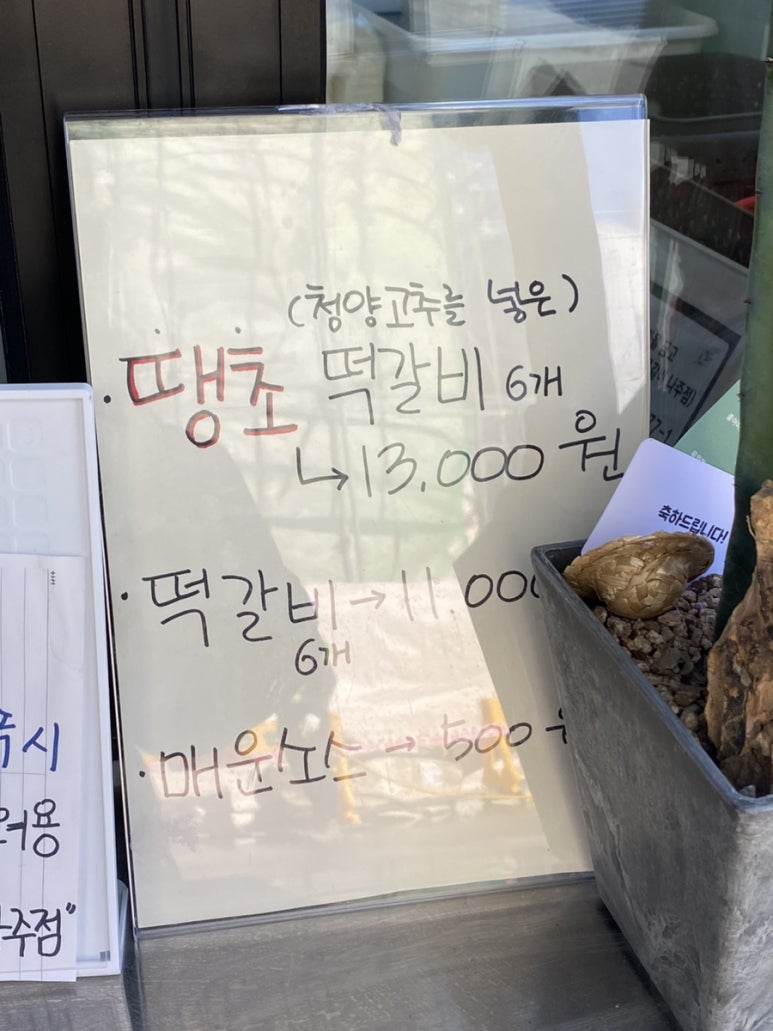 (청양고추를 넣은)
· 땡초 떡갈비 6개
↳ 13,000 원
· 떡갈비 → 11.000
6개
· 매운소스 → 500
축하드립니다!
시
용
주점"
나주점)